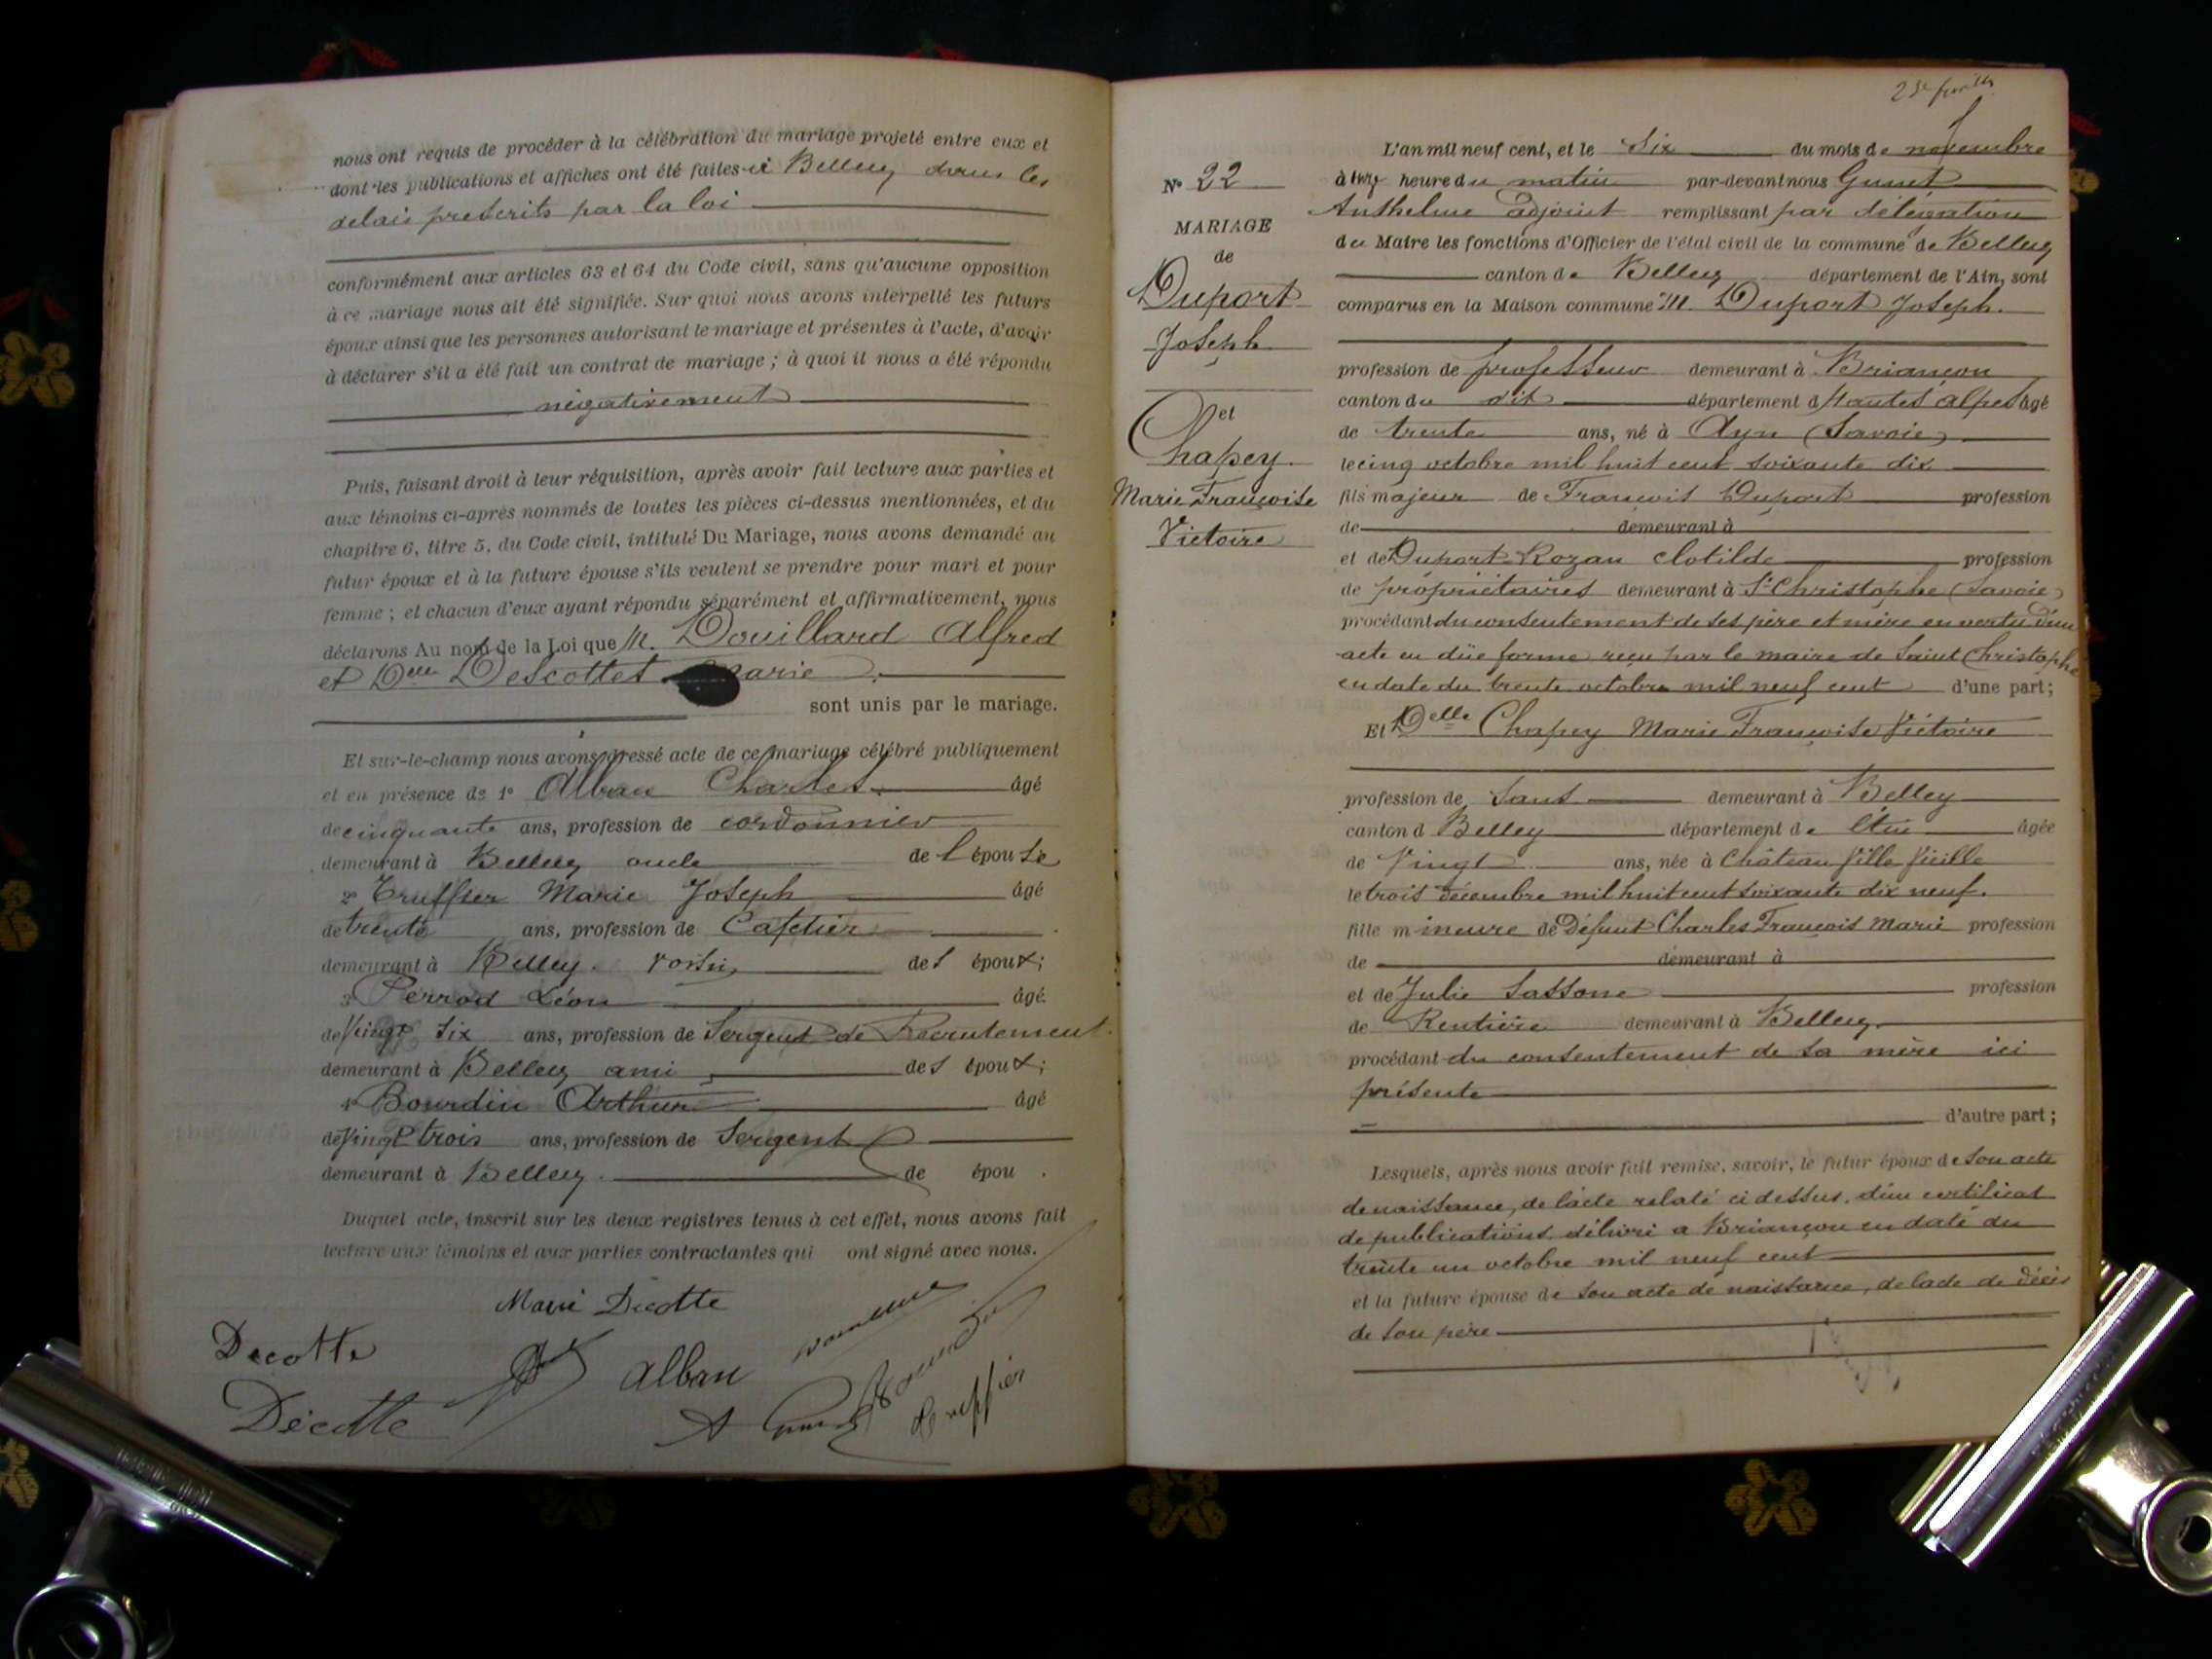 nous ont requis de procéder à la célébration du mariage projeté entre eux et
dont les publications et affiches ont été faites à Belley dans les
delais prescrits par la loi
conformément aux articles 63 et 64 du Code civil, sans qu'aucune opposition
à ce mariage nous ait été signifiée. Sur quoi nous avons interpellé les futurs
époux ainsi que les personnes autorisant le mariage et présentes à l'acte, d'avoir
à déclarer s'il a été fait un contrat de mariage ; à quoi il nous a été répondu
négativement
Puis, faisant droit à leur réquisition, après avoir fait lecture aux parties et
aux témoins ci-après nommés de toutes les pièces ci-dessus mentionnées, et du
chapitre 6, titre 5, du Code civil, intitulé Du Mariage, nous avons demandé au
futur époux et à la future épouse s'ils veulent se prendre pour mari et pour
femme ; et chacun d'eux ayant répondu séparément et affirmativement, nous
déclarons Au nom de la Loi que M. Douillard Alfred
et Delle Descottet Marie
sont unis par le mariage.
Et sur-le-champ nous avons dressé acte de ce mariage célébré publiquement
et en présence de 1° Alban Charles âgé
de cinquante ans, profession de cordonnier
demeurant à Belley oncle de l'épouse
2° Truffier Marie Joseph âgé
de trente ans, profession de Cafetier
demeurant à Belley voisin des époux;
3° Perrod Léon âgé
de Vingt six ans, profession de Sergent de Recrutement
demeurant à Belley ami des époux;
4° Bourdin Arthur âgé
de Vingt trois ans, profession de Sergent
demeurant à Belley de épou .
Duquel acte, inscrit sur les deux registres tenus à cet effet, nous avons fait
lecture aux témoins et aux parties contractantes qui ont signé avec nous.
Marie Decotte
Decotte
Alban
Bourdin
Décotte
Truffier
N° 22
MARIAGE
de
Duport
Joseph
et
Chapey
Marie Françoise
Victoire
L'an mil neuf cent, et le Six du mois de novembre
à onze heure du matin par-devant nous Gunet
Anthelme adjoint remplissant par délégation
du Maire les fonctions d'Officier de l'état civil de la commune de Belley
canton de Belley département de l'Ain, sont
comparus en la Maison commune M. Duport Joseph.
profession de professeur demeurant à Briançon
canton du dit département d Hautes Alpes âgé
de trente ans, né à Ayn (Savoie)
le cinq octobre mil huit cent soixante dix
fils majeur de François Duport profession
de demeurant à
et de Duport-Rozan Clotilde profession
de propriétaires demeurant à St Christophe (Savoie)
procédant du consentement de ses père et mère en vertu d'un
acte en dûe forme reçu par le maire de Saint Christophe
en date du trente octobre mil neuf cent d'une part;
Et Delle Chapey Marie Françoise Victoire
profession de Sans demeurant à Belley
canton d Belley département de l'Ain âgée
de Vingt ans, née à Château Ville Vieille
le trois décembre mil huit cent soixante dix neuf.
fille mineure de Défunt Charles François Marie profession
de demeurant à
et de Julie Sassone profession
de Rentière demeurant à Belley.
procédant du consentement de sa mère ici
présente
d'autre part ;
Lesquels, après nous avoir fait remise, savoir, le futur époux de son acte
de naissance, de l'acte relaté ci dessus, d'un certificat
de publications délivré a Briançon en date du
trente un octobre mil neuf cent
et la future épouse de son acte de naissance, de l'acte de décès
de son père